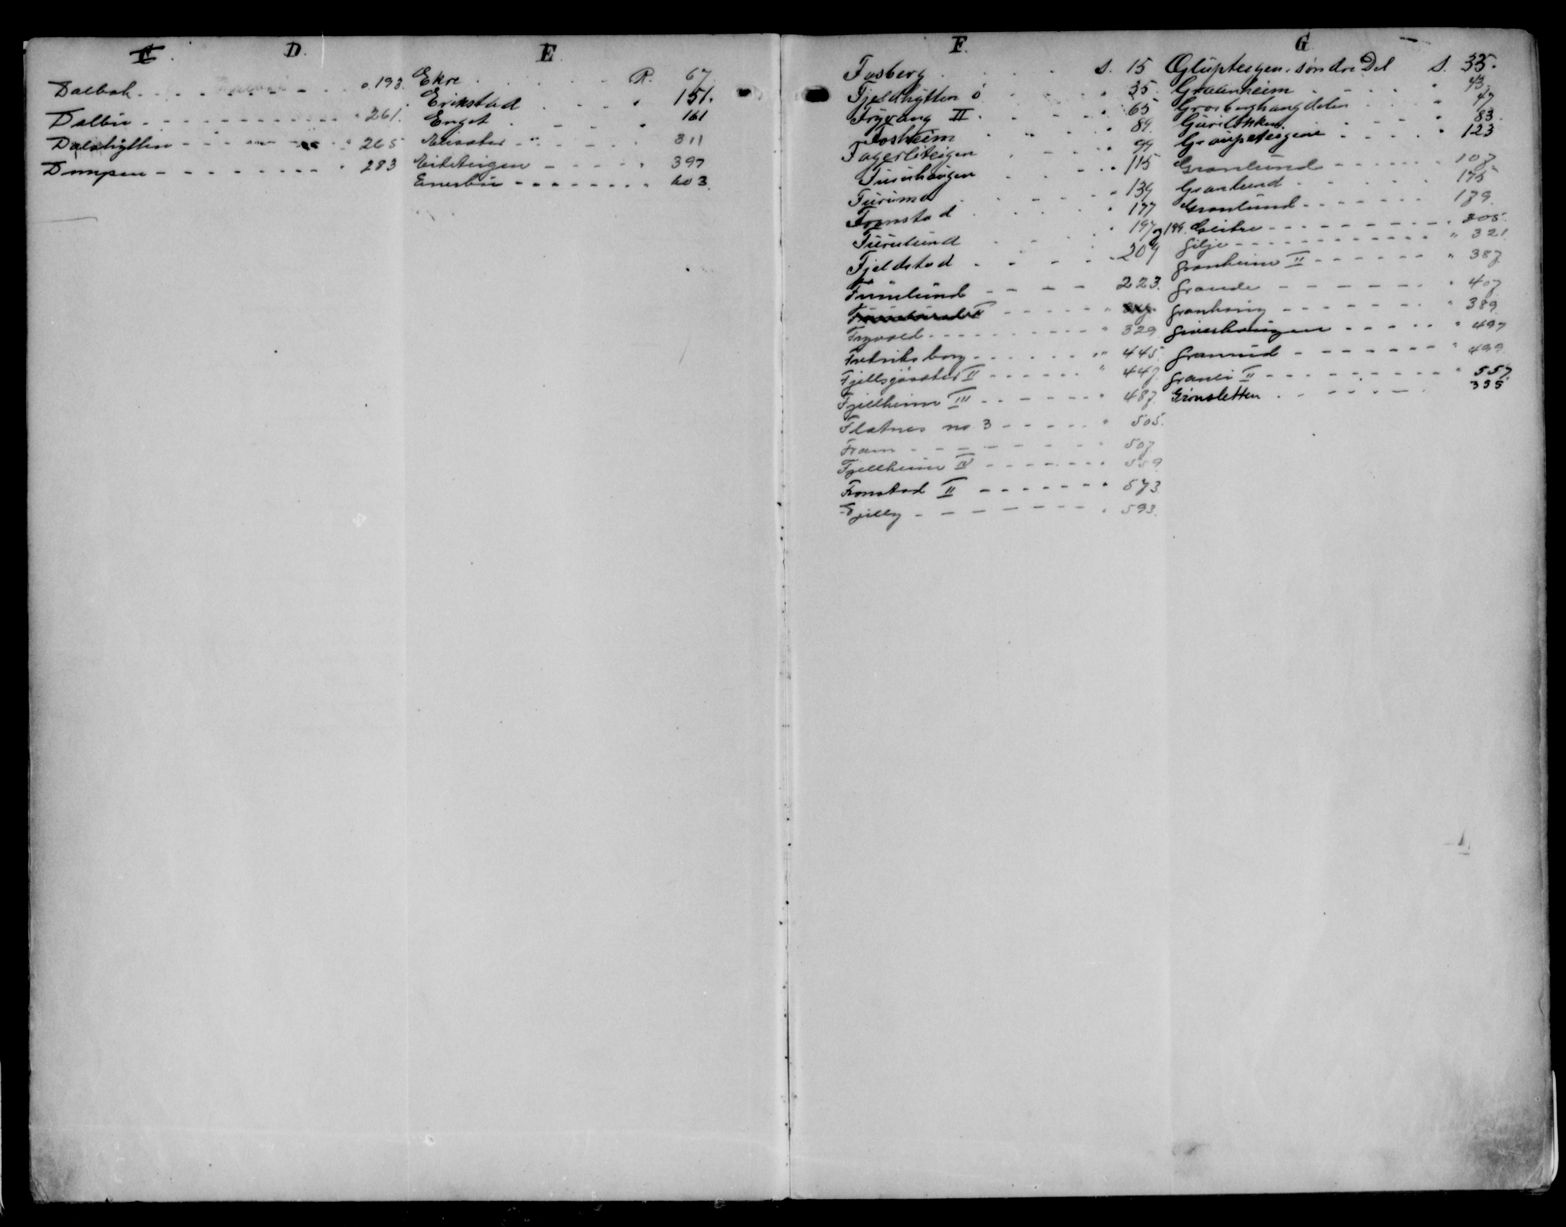 D.
Dalbak 193
Dalbu 261
Dalshytten 265
Dumpen 283
E
Ekre P. 67
Erikstad 151.
Enget 161
311
Eikiteigen 397
Enerbu 603
F.
Fosberg S. 15
Fjeldhytten ö 35
Frygang II 65
Fosheim 89.
Fagerliteigen 99
Furuhaugen 115
Furumo 139
Fronstad 177
Furulund 197 og 199.
Fjeldstad 209
Furulund 223.
Frydvold 329
Fredriksborg 445
II 447
Fjellheim III 487
Flatnes no 3 505.
Fram 507
Fjellheim IV 559
Fronstad II 573
Fjelly 593.
G
Glupteigen, söndre Del S. 33.
Graneheim 43
Grosberghaugdelen 47
Gurilökken 83
Graupeteigene 123
Granlund 107
Granlund 175
Granlund 179.
Geitre 205
Gilje 321
Granheim II 387
Grande 407
Granhaug 389
497
Granrud 499
Granli II 557
Gronsletten 335